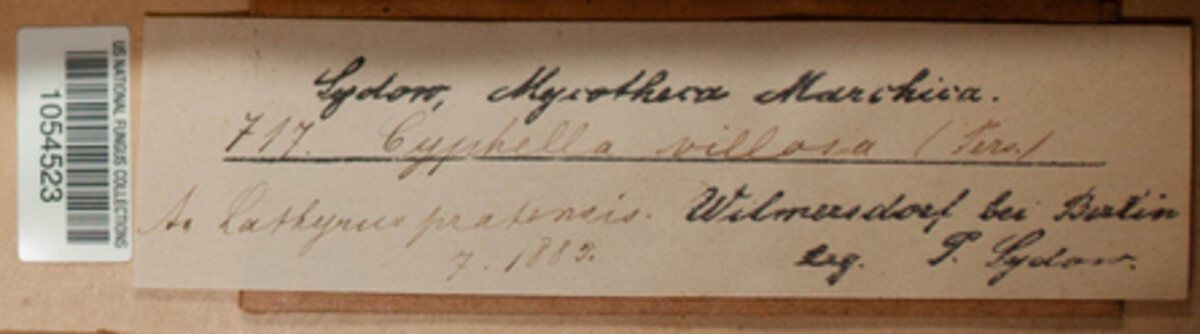 US NATIONAL FUNGUS COLLECTIONS
1054523
Sydow, Mycotheca Marchica.
717. Cyphella villosa (Pers.)
An Lathyrus pratensis. Wilmersdorf bei Berlin
7. 1883. leg. P. Sydow.